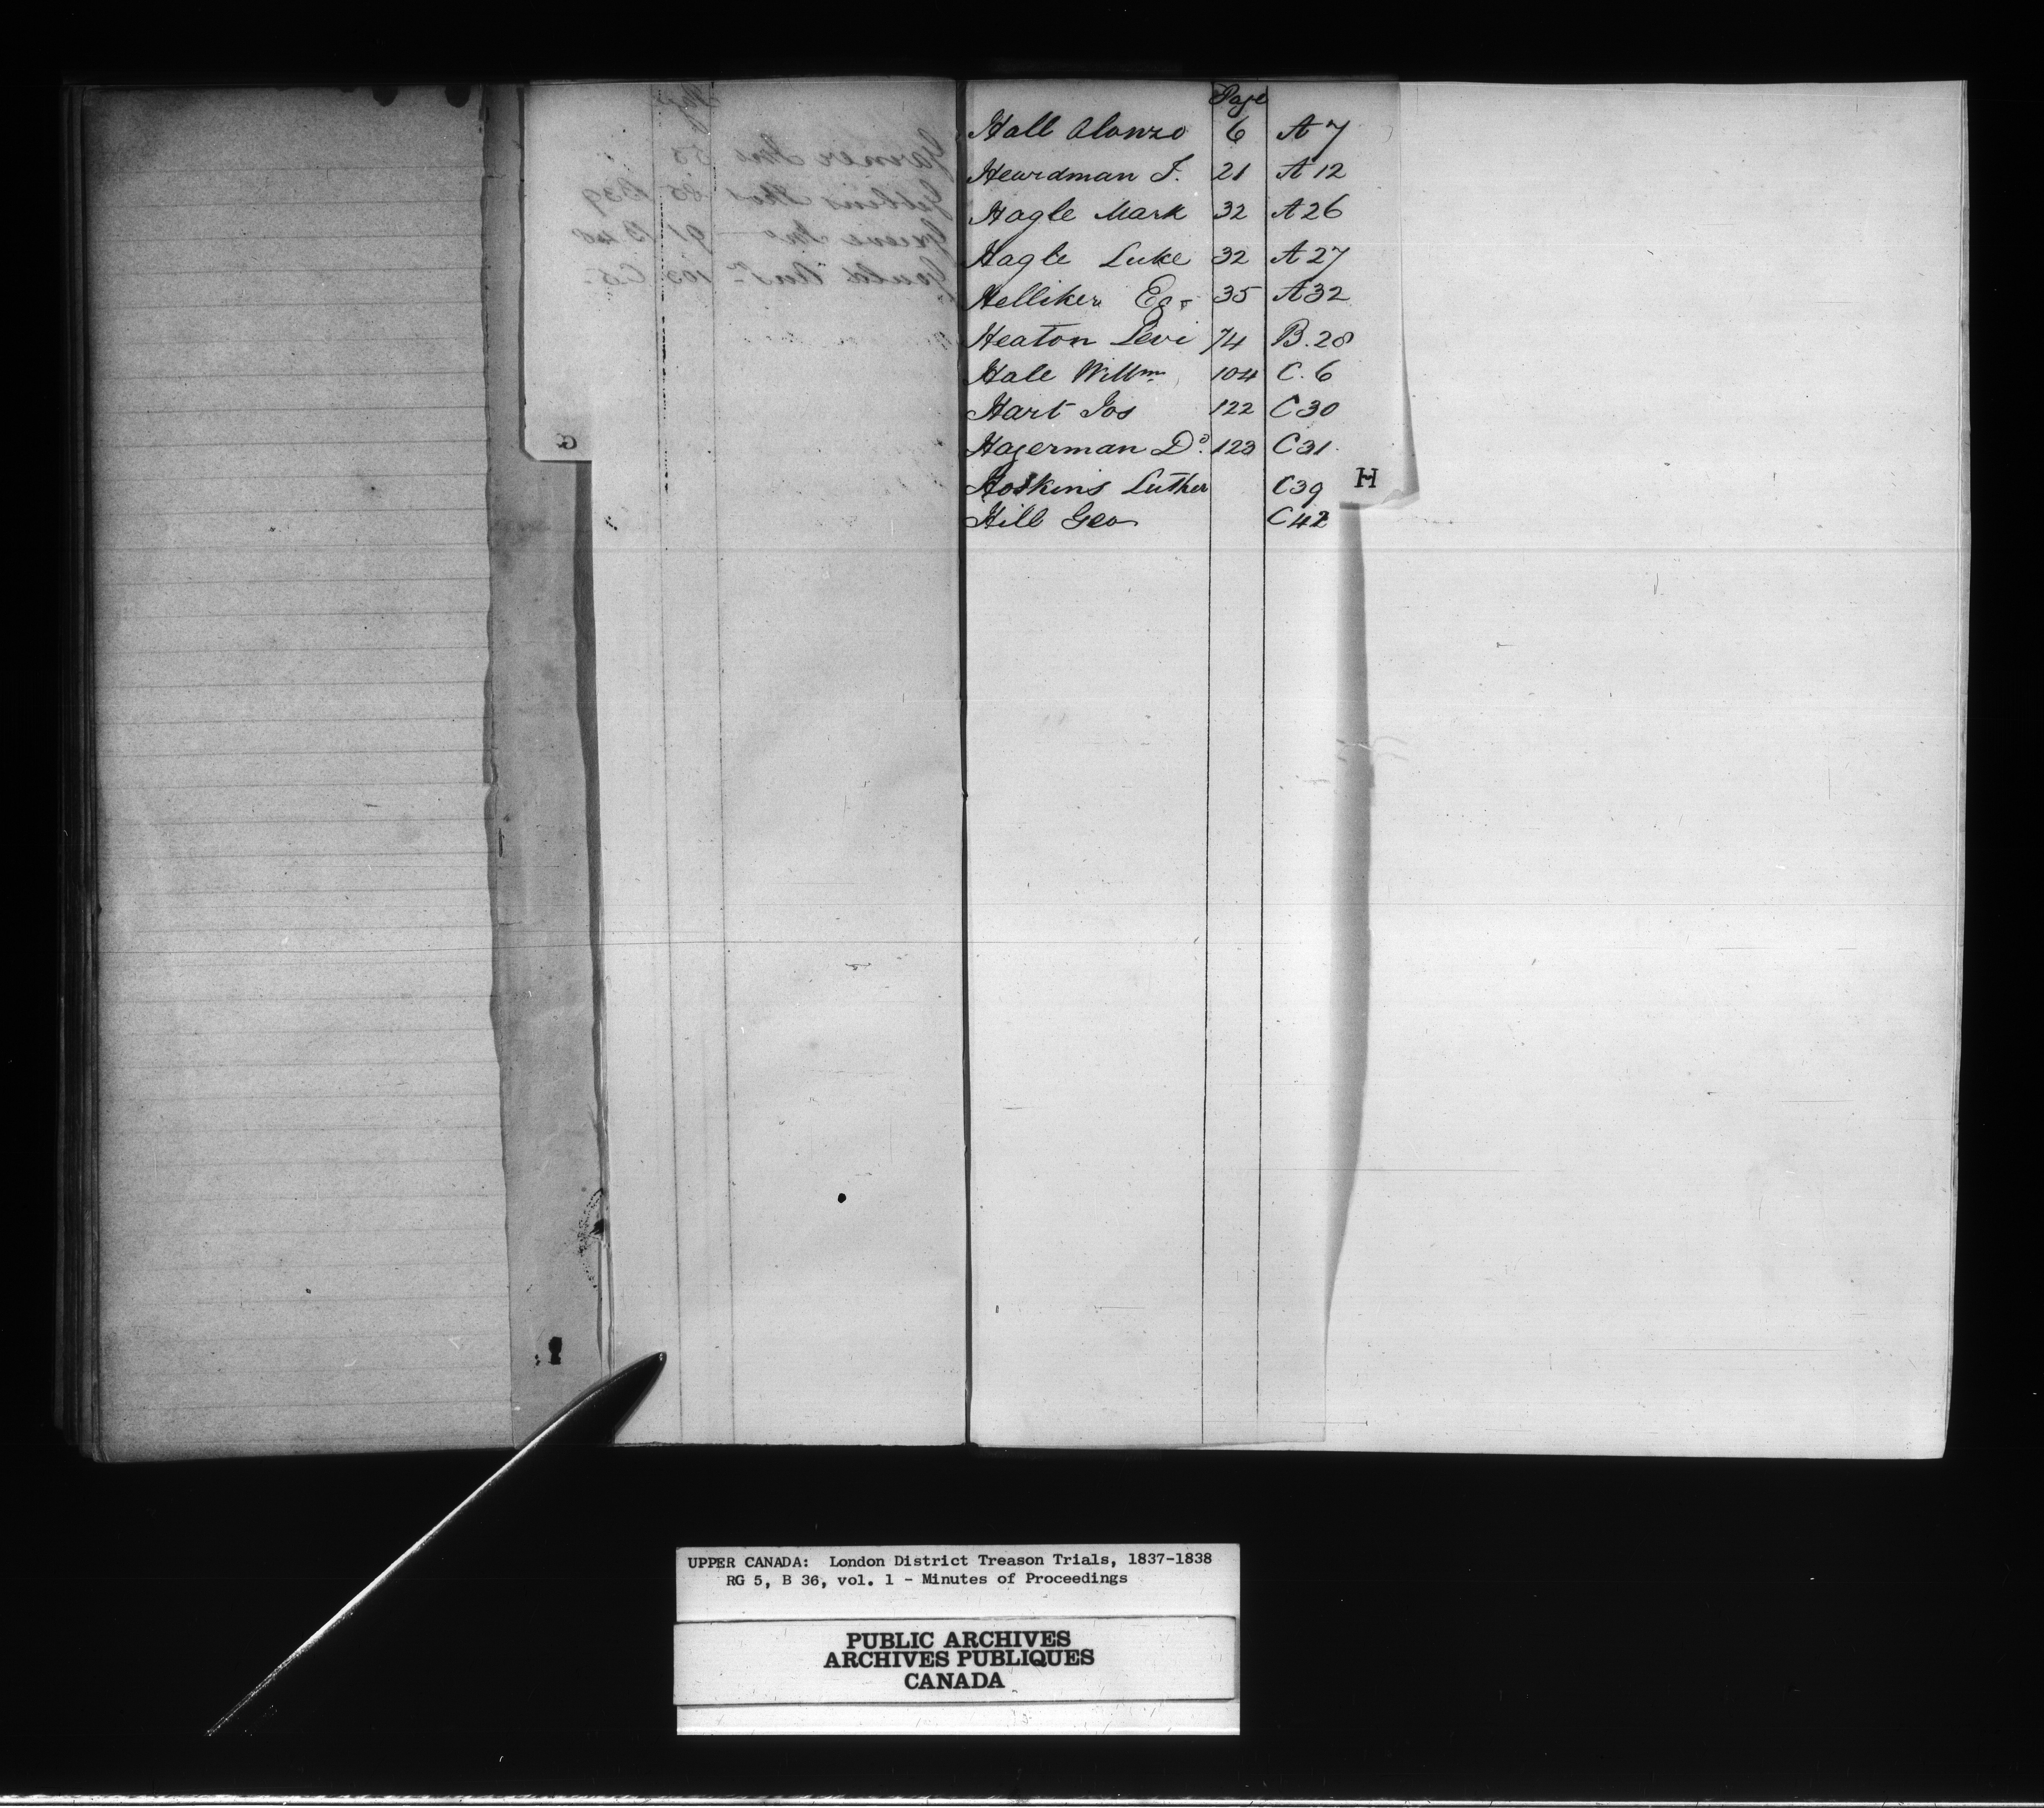 Page
Hall Alonzo 6 A 7
Heardman J. 21 A 12
Hagle Mark 32 A 26
Hagle Luke 32 A 27
Helliker 35 A 32
Heaton Levi 74 B. 28
Hale Willm 104 C. 6
Hart Jos 122 C 30
Hagerman Do. 123 C 31.
Hoskins Luther C 39
Hill Geo C 42
H
G
UPPER CANADA: London District Treason Trials, 1837-1838
RG 5, B 36, vol. 1 - Minutes of Proceedings
PUBLIC ARCHIVES
ARCHIVES PUBLIQUES
CANADA